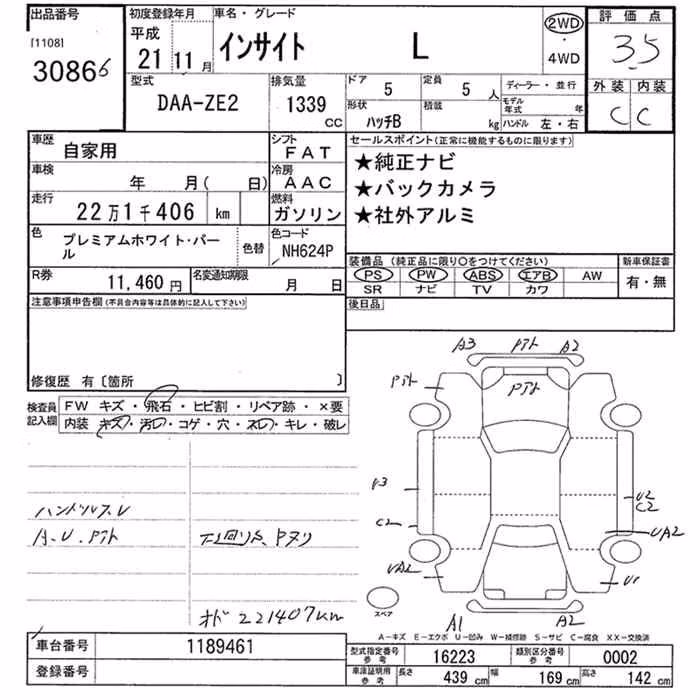 出品番号
[1108]
30866
初度登録年月
平成
21 11 月
車名・グレード
インサイト L
2WD
・
4WD
評価点
3.5
外装 内装
C C
型式
DAA-ZE2
排気量
1339
CC
ドア
5
定員
5 人
ディーラー・並行
形状
ハッチB
積載
kg
モデル年式 年
ハンドル 左・右
車歴
自家用
シフト
FAT
車検
年 月( 日)
冷房
AAC
走行
22万1千406 km
燃料
ガソリン
色
プレミアムホワイト・パール
色替
色コード
NH624P
R券
11,460 円
名変通知期限
月 日
セールスポイント(正常に機能するものに限ります)
★純正ナビ
★バックカメラ
★社外アルミ
装備品 (純正品に限り○をつけてください)
PS PW ABS エアB AW
SR ナビ TV カワ
新車保証書
有・無
後日品
注意事項申告欄(不具合内容等は具体的に記入して下さい)
修復歴 有〔箇所 〕
検査員記入欄
FW キズ・飛石・ヒビ割・リペア跡・×要
内装 キズ・汚レ・コゲ・穴・スレ・キレ・破レ
ハンドルスレ
A.U.Pアト
下回リS、Pヌリ
オド 221407km
A3 Pアト A2
Pアト
Pアト
U3
C2
UA2
U2
C2
UA2
U1
スペア
A1 A2
A-キズ E-エクボ U-凹み W-補修跡 S-サビ C-腐食 XX-交換済
車台番号
1189461
登録番号
型式指定番号
参考
16223
類別区分番号
参考
0002
車庫証明用
参考
長さ
439 cm
幅
169 cm
高さ
142 cm